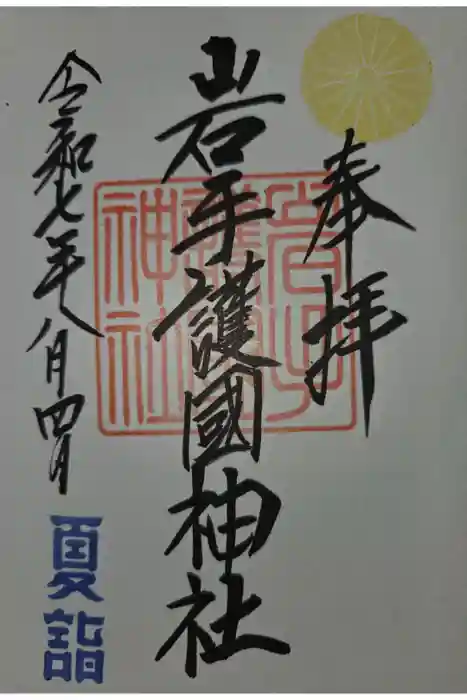 奉拝
岩手護國神社
岩手護國神社
令和七年八月四日
夏詣